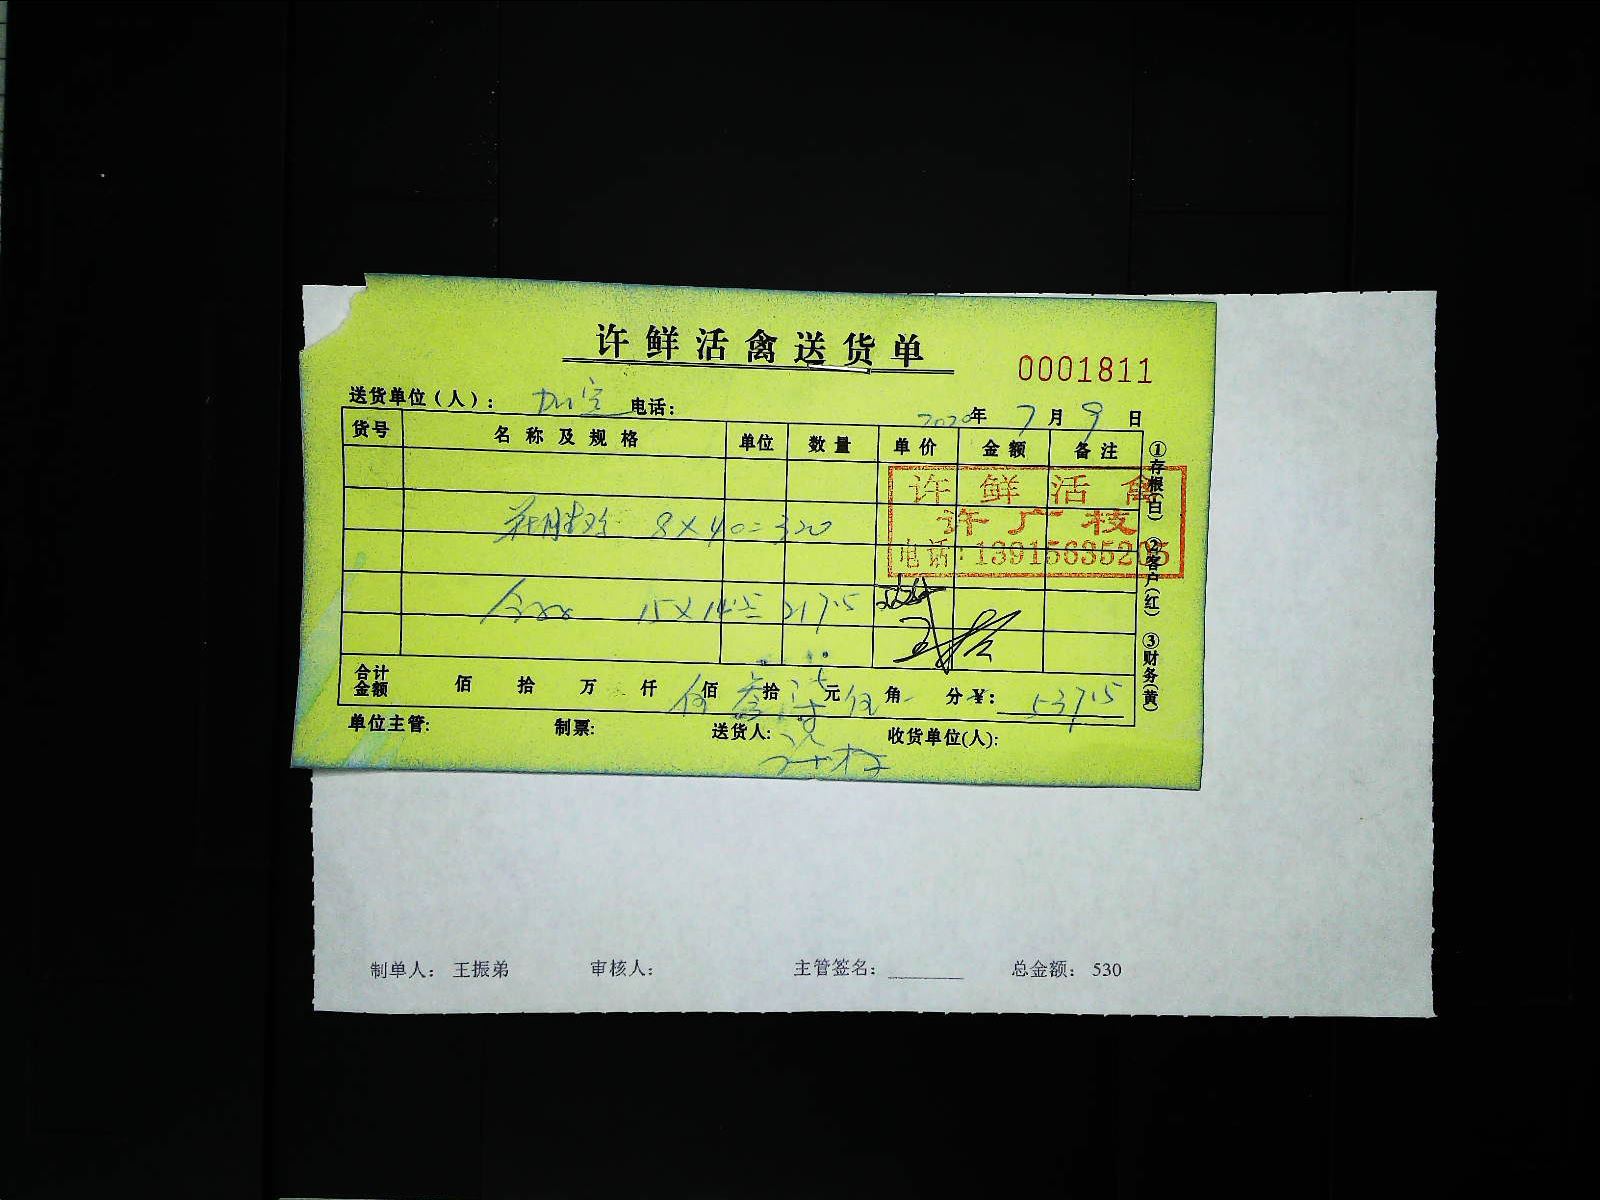 许鲜活禽送货单
0001811
送货单位(人): 电话: 2020年 7月 9日
货号 名称及规格 单位 数量 单价 金额 备注
许鲜活禽
许广枝
电话:13915635205
8×40=320
15×14.5=217.5
合计金额 佰 拾 万 仟 伍佰 叁拾 柒元 伍角 分 ¥: 537.5
单位主管: 制票: 送货人: 收货单位(人):
①存根(白) ②客户(红) ③财务(黄)
制单人: 王振弟 审核人: 主管签名: 总金额: 530